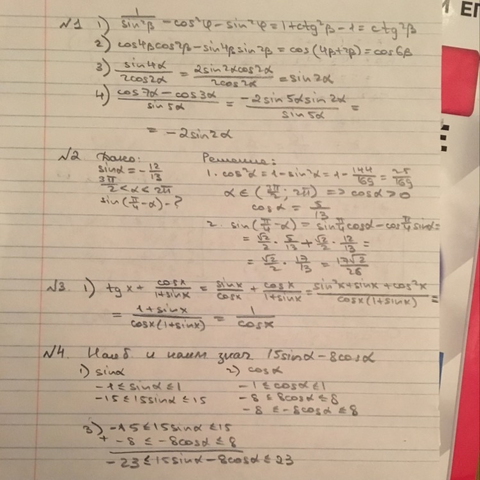 №1 1) 1/sin²β - cos²φ - sin²φ = 1 + ctg²β - 1 = ctg²β
2) cos4βcos2β - sin4βsin2β = cos(4β+2β) = cos6β
3) sin4α/2cos2α = 2sin2αcos2α/2cos2α = sin2α
4) cos7α - cos3α/sin5α = -2sin5αsin2α/sin5α =
= -2sin2α
№2 Дано: Решение:
sinα = -12/13 1. cos²α = 1 - sin²α = 1 - 144/169 = 25/169
3π/2 < α < 2π α ∈ (3π/2; 2π) => cosα > 0
sin(π/4 - α) - ? cosα = 5/13
2. sin(π/4 - α) = sinπ/4cosα - cosπ/4sinα =
= √2/2 · 5/13 + √2/2 · 12/13 =
= √2/2 · 17/13 = 17√2/26
№3. 1) tgx + cosx/1+sinx = sinx/cosx + cosx/1+sinx = sin²x + sinx + cos²x/cosx(1+sinx) =
= 1+sinx/cosx(1+sinx) = 1/cosx
№4. Наиб и наим знач 15sinα - 8cosα
1) sinα 2) cosα
-1 ≤ sinα ≤ 1 -1 ≤ cosα ≤ 1
-15 ≤ 15sinα ≤ 15 -8 ≤ 8cosα ≤ 8
-8 ≤ -8cosα ≤ 8
3) -15 ≤ 15sinα ≤ 15
+ -8 ≤ -8cosα ≤ 8
-23 ≤ 15sinα - 8cosα ≤ 23